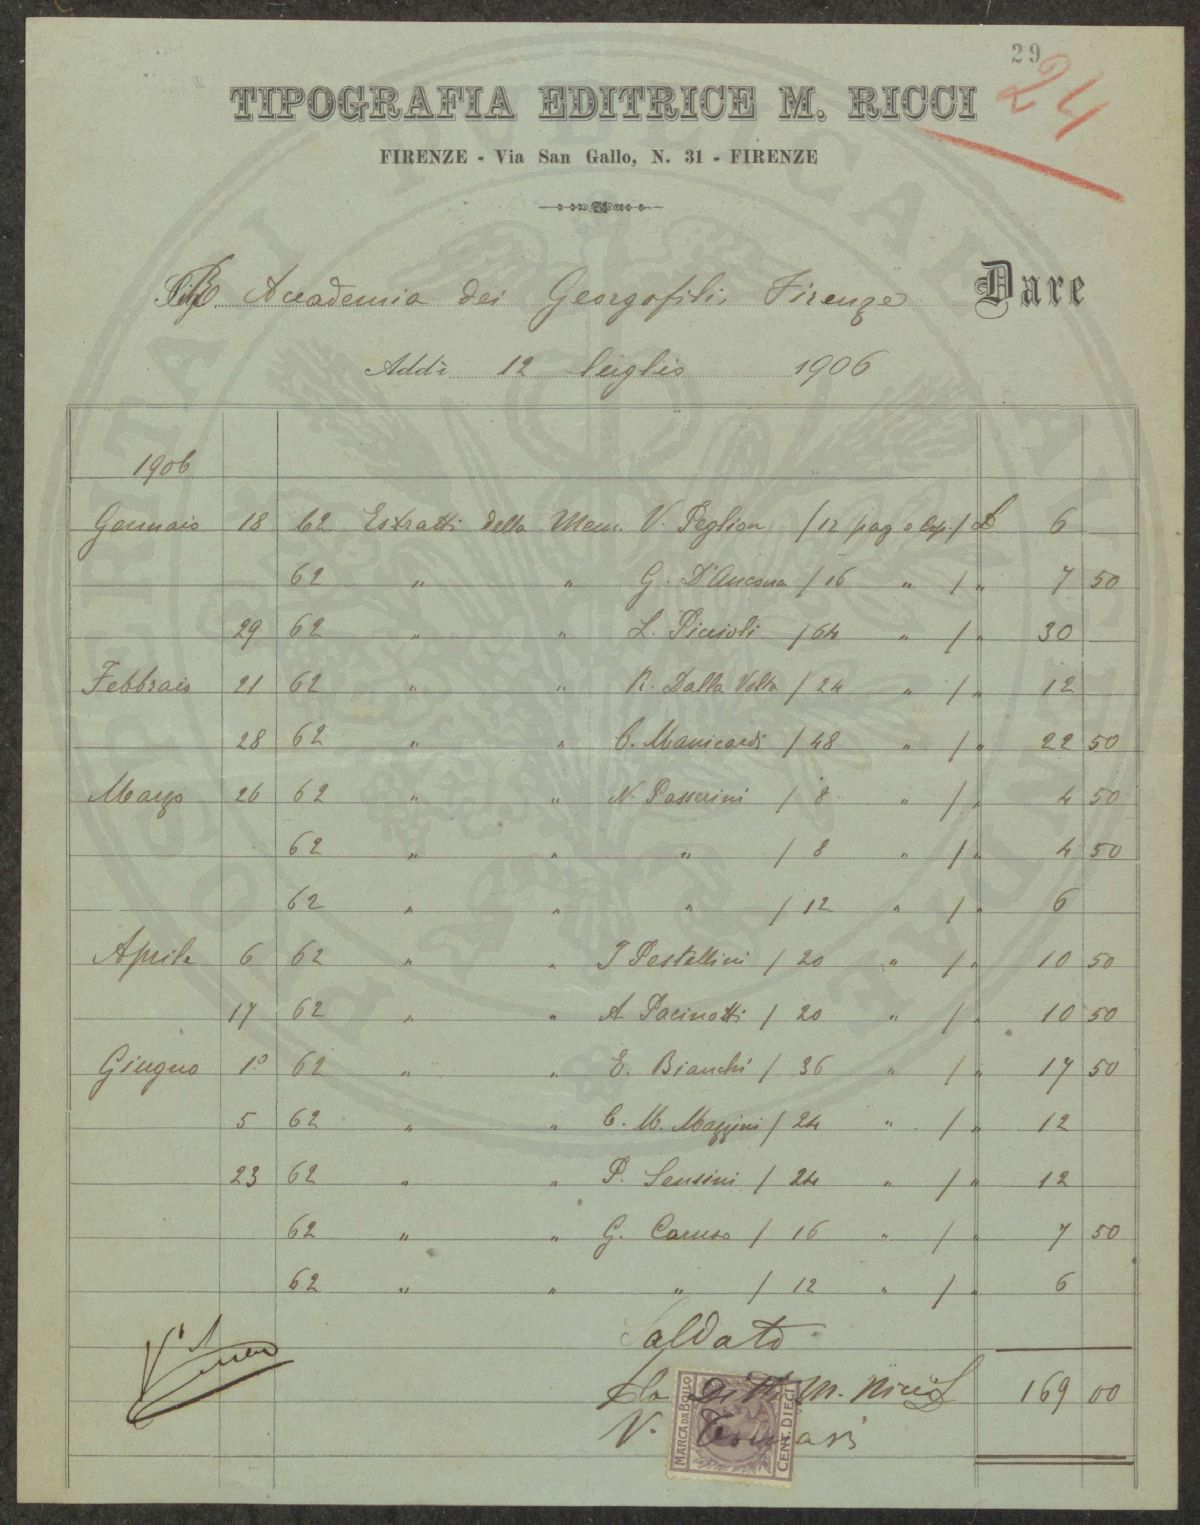 29
24
TIPOGRAFIA EDITRICE M. RICCI
FIRENZE - Via San Gallo, N. 31 - FIRENZE
R. Accademia dei Georgofili, Firenze Dare
Addì 12 luglio 1906
1906
Gennaio 18 62 Estratti della Mem. V. Peglion / 12 pag e Cop. / L 6
62 " " G. D'Ancona / 16 " / " 7 50
29 62 " " L. Piccioli / 64 " / " 30
Febbraio 21 62 " " R. Dalla Volta / 24 " / " 12
28 62 " " C. Manicardi / 48 " / " 22 50
Marzo 26 62 " " N. Passerini / 8 " / " 4 50
62 " " " / 8 " / " 4 50
62 " " " / 12 " / " 6
Aprile 6 62 " " T Pestellini / 20 " / " 10 50
17 62 " " A. Pacinotti / 20 " / " 10 50
Giugno 1.º 62 " " E. Bianchi / 36 " / " 17 50
5 62 " " C. M. Mazzini / 24 " / " 12
23 62 " " P. Sensini / 24 " / " 12
62 " " G. Caruso / 16 " / " 7 50
62 " " " / 12 " / " 6
Saldato
p la Ditta M. Ricci L 169 00
V. Tommasi
MARCA DA BOLLO
CENT. DIECI